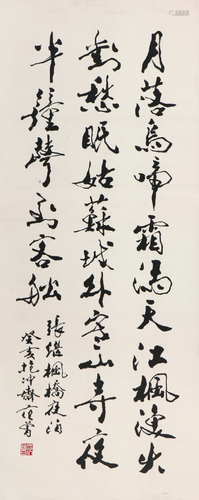 月落烏啼霜滿天江楓漁火
對愁眠姑蘇城外寒山寺夜
半鐘聲到客船
張繼楓橋夜泊
癸亥抱沖齋范曾